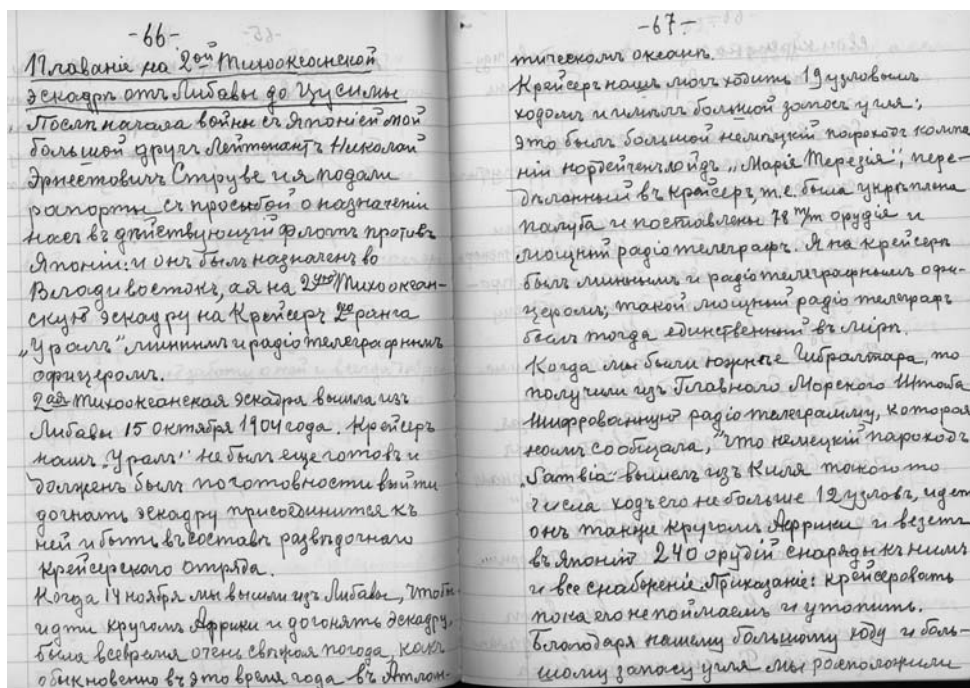 -66-
Плаваніе на 2ой Тихоокеанской
эскадрѣ отъ Либавы до Цусимы
Послѣ начала войны съ Японіей мой
большой другъ Лейтенантъ Николай
Эрнестовичъ Струве и я подали
рапорты съ просьбой о назначеніи
насъ въ дѣйствующій флотъ противъ
Японіи: и онъ былъ назначенъ во
Владивостокъ, а я на 2ую Тихоокеан-
скую эскадру на Крейсеръ 2го ранга
„Уралъ" миннымъ и радіотелеграфнымъ
офицеромъ.
2ая Тихоокеанская эскадра вышла изъ
Либавы 15 октября 1904 года. Крейсеръ
нашъ „Уралъ" не былъ еще готовъ и
долженъ былъ по готовности выйти
догнать эскадру присоединится къ
ней и быть въ составѣ развѣдочнаго
крейсерскаго отряда.
Когда 14 ноября мы вышли изъ Либавы, чтобы
идти кругомъ Африки и догонять эскадру,
была всевремя очень свѣжая погода, какъ
обыкновенно въ это время года въ Атлан-
-67-
тическомъ океанѣ.
Крейсеръ нашъ могъ ходить 19 узловымъ
ходомъ и имѣлъ большой запасъ угля;
это былъ большой немѣцкій пароходъ компа-
ніи нордейченлойдъ „Марія Терезія", пере-
дѣланный въ крейсеръ, т.е. была укрѣплена
палуба и поставлены 78 m/m орудія и
мощный радіотелеграфъ. Я на крейсерѣ
былъ миннымъ и радіотелеграфнымъ офи-
церомъ; такой мощный радіотелеграфъ
былъ тогда единственный въ мірѣ.
Когда мы были южнѣе Гибралтара, то
получили изъ Главнаго Морского Штаба
шифрованную радіотелеграмму, которая
намъ сообщала, "что немецкій пароходъ
„Sambia" вышелъ изъ Киля такого то
числа ходъ его не больше 12 узловъ, идетъ
онъ такце кругомъ Африки и везетъ
въ Японію 240 орудій снаряды къ нимъ
и все снабженіе. Приказаніе: крейсеровать
пока его не поймаемъ и утопить.
Благодаря нашему большому ходу и боль-
шому запасу угля мы расположили